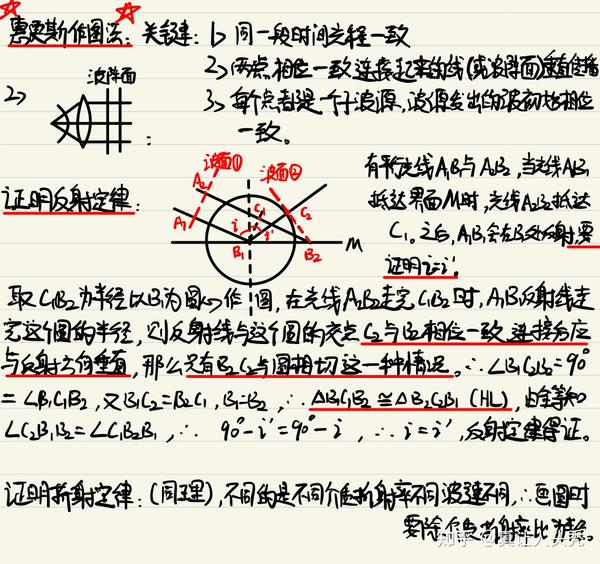 惠更斯作图法: 关键: 1> 同一段时间光程一致
2> 两点相位一致连接起来的线(或波阵面)垂直传播
3> 每个点都是一个子波源, 波源发出的波初始相位一致。
2>
波阵面
:
证明反射定律:
波面①
波面②
A₂
A₁
C₁
C₂
i
i'
B₁
B₂
M
有平行光线A₁B₁与A₂B₂, 当光线A₁B₁
抵达界面M时, 光线A₂B₂抵达
C₁。之后, A₁B₁会在B₁处反射, 要
证明i=i'。
取C₁B₂为半径以B₁为圆心作圆, 在光线A₂B₂走完C₁B₂时, A₁B₁反射线走
完这个圆的半径, 则反射线与这个圆的交点C₂与B₂相位一致, 连接后应
与反射方向垂直, 那么只有B₂C₂与圆相切这一种情况。∴∠B₁C₂B₂=90°
=∠B₁C₁B₂, 又B₁C₂=B₂C₁, B₁B₂=B₂B₁, ∴△B₁C₁B₂≌△B₂C₂B₁ (HL), 由全等知
∠C₂B₁B₂=∠C₁B₂B₁, ∴ 90°-i'=90°-i, ∴ i=i', 反射定律得证。
证明折射定律: (同理), 不同的是不同介质折射率不同, 波速不同, ∴画图时
要除介质折射率比为径。
知乎 @莫让人头秃